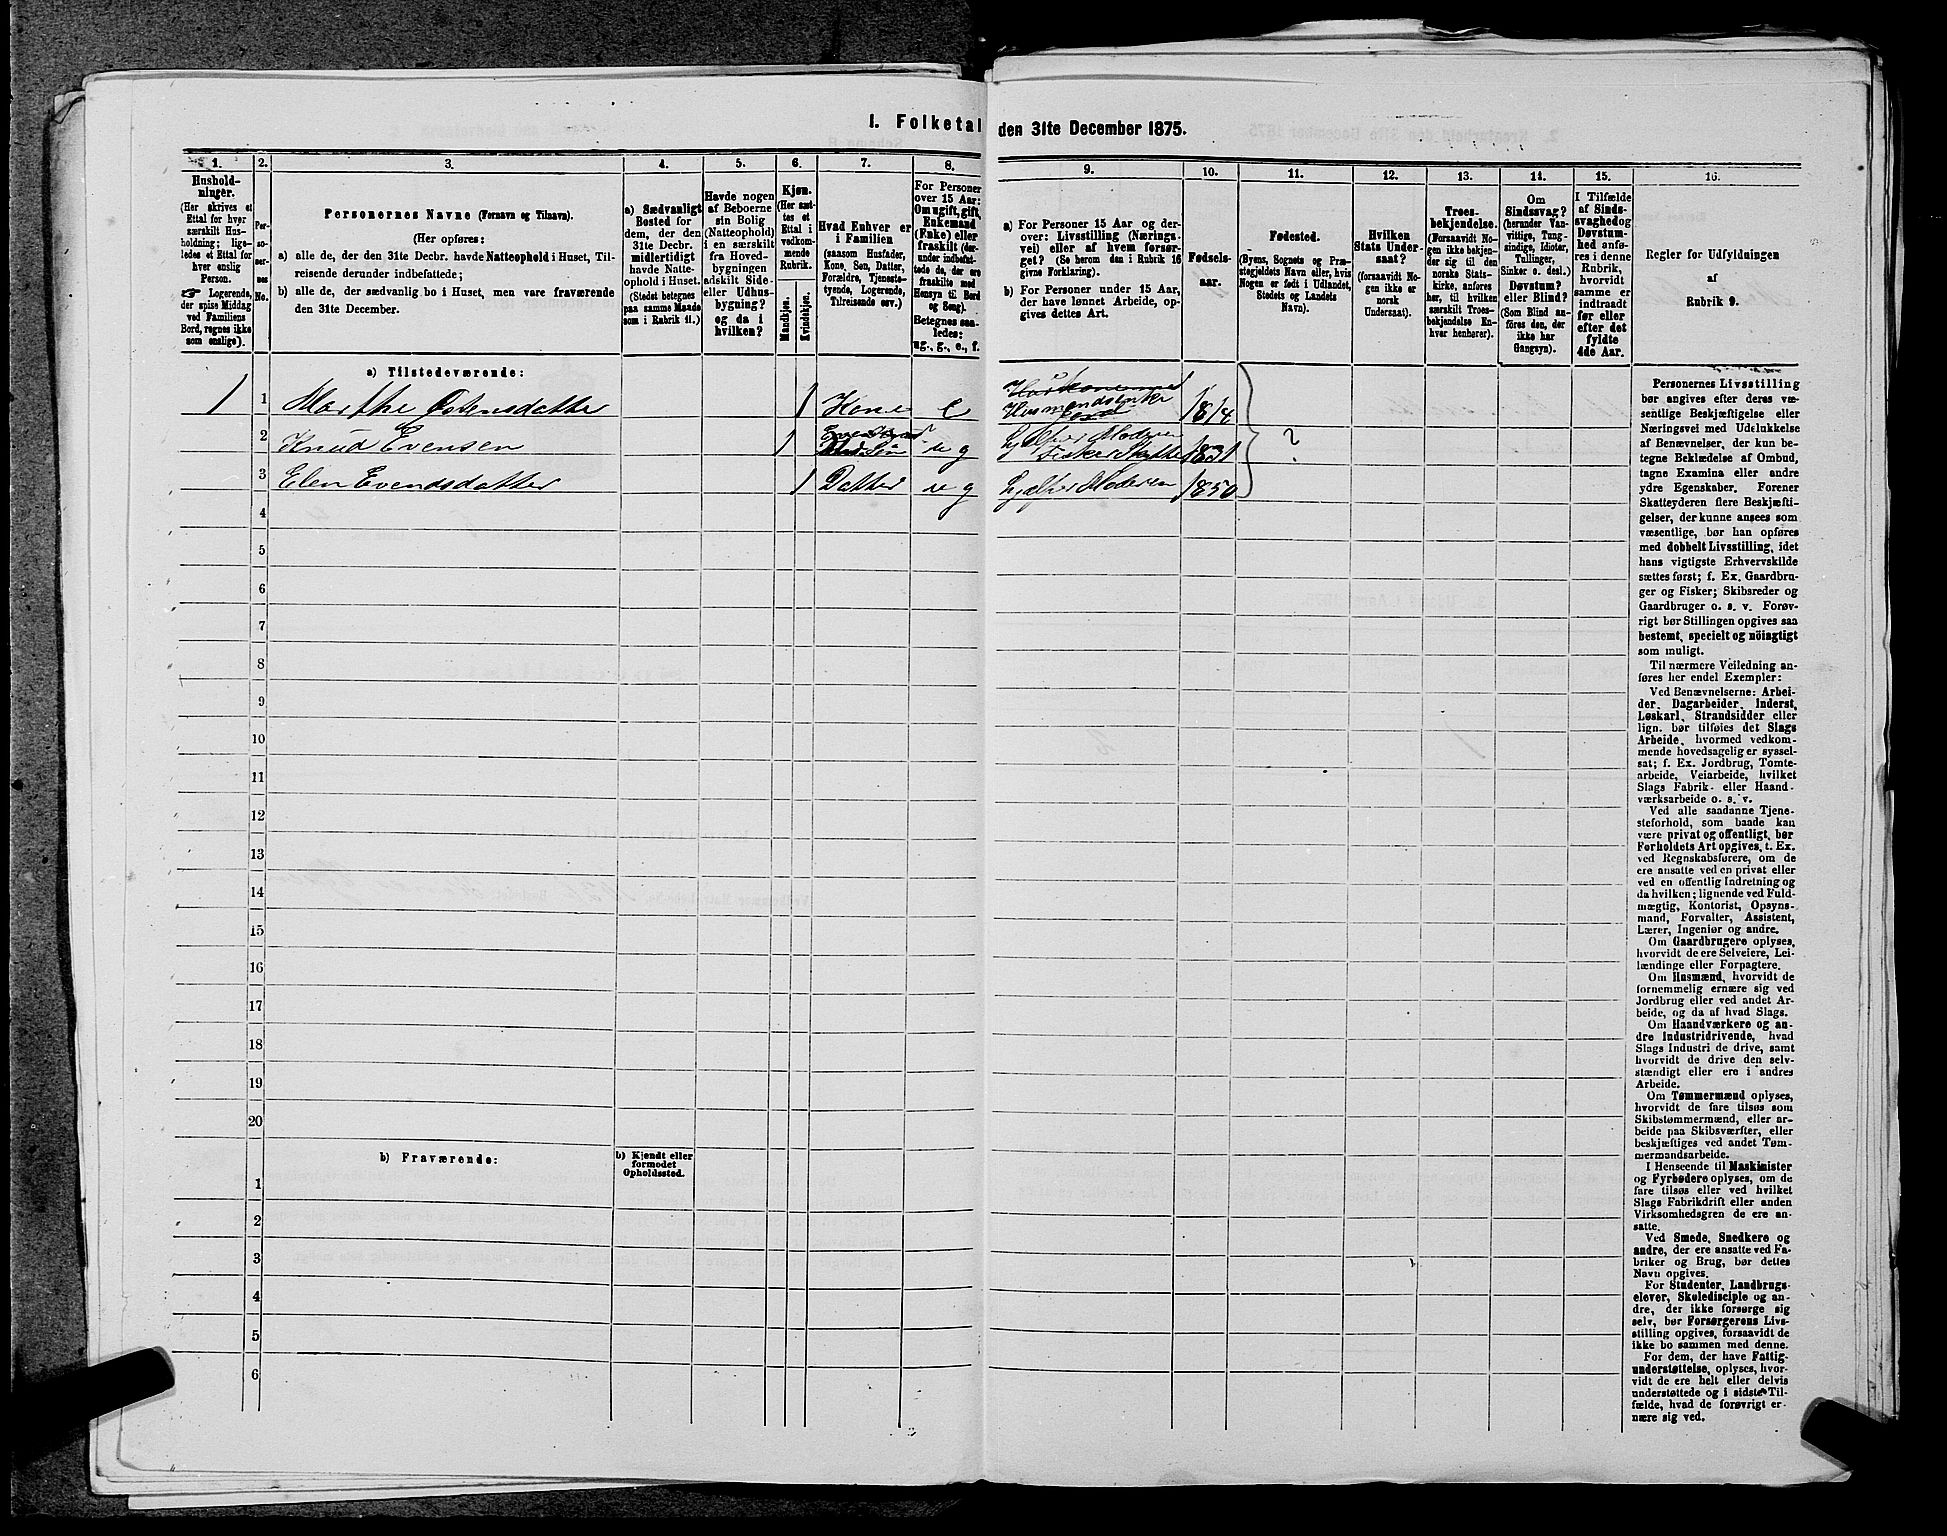 I. Folketal den 31te December 1875.
1.
Hushold-
ninger.
(Her skrives et
Ettal for hver
særskilt Hus-
holdning; lige-
ledes et Ettal for
hver enslig
Person.
☛ Logerende,
der spise Middag
ved Familiens
Bord, regnes ikke
som enslige).
2.
Per-
so-
ner-
nes
No.
3.
Personernes Navne (Fornavn og Tilnavn).
(Her opføres:
a) alle de, der den 31te Decbr. havde Natteophold i Huset, Til-
reisende derunder indbefattede;
b) alle de, der sædvanlig bo i Huset, men vare fraværende
den 31te December.
4.
a) Sædvanligt
Bosted for
dem, der den
31te Decbr.
midlertidigt
havde Natte-
ophold i Huset.
(Stedet betegnes
paa samme Maade
som i Rubrik 11.)
5.
Havde nogen
af Beboerne
sin Bolig
(Natteophold)
i en særskilt
fra Hoved-
bygningen
adskilt Side-
eller Udhus-
bygning?
og da i
hvilken?
6.
Kjøn.
(Her sæt-
tes et
Ettal i
vedkom-
mende
Rubrik.
Mandkjøn.
Kvindekjøn.
7.
Hvad Enhver er
i Familien
(saasom Husfader,
Kone, Søn, Datter,
Forældre, Tjeneste-
tyende, Logerende,
Tilreisende osv.)
8.
For Personer
over 15 Aar:
Om ugift, gift,
Enkemand
(Enke) eller
fraskilt (der-
under indbefat-
tede de, der ere
fraskilte med
Hensyn til Bord
og Seng).
Betegnes saa-
ledes:
ug., g., e., f.
9.
a) For Personer 15 Aar og der-
over: Livsstilling (Nærings-
vei) eller af hvem forsør-
get? (Se herom den i Rubrik 16
givne Forklaring).
b) For Personer under 15 Aar,
der have lønnet Arbeide, op-
gives dettes Art.
10.
Fødsels-
aar.
11.
Fødested.
(Byens, Sognets og Præ-
stegjeldets Navn eller, hvis
Nogen er født i Udlandet,
Stedets og Landets
Navn).
12.
Hvilken
Stats Under-
saat?
(forsaavidt No-
gen ikke er
norsk
Undersaat).
13.
Troes-
bekjendelse.
(Forsaavidt No-
gen ikke bekjen-
der sig til den
norske Stats-
kirke, anføres
her, til hvilken
særskilt Troes-
bekjendelse En-
hver henhører).
14.
Om
Sindssvag?
(herunder Van-
vittige, Tung-
sindige, Idioter,
Tullinger,
Sinker o. desl.)
Døvstum?
eller Blind?
(Som Blind an-
føres den, der
ikke har
Gangsyn).
15.
I Tilfælde
af Sinds-
svaghed og
Døvstum-
hed anfø-
res i denne
Rubrik,
hvorvidt
samme er
indtraadt
før eller
efter det
fyldte
4de Aar.
16.
Regler for Udfyldningen
af
Rubrik 9.
a) Tilstedeværende:
1 1 Marthe Østensdatter 1 Kone e Husmandsenke 1814
2 Knud Evensen 1 Søn ug Hjelper Moderen 1831 ?
3 Elen Evendsdatter 1 Datter ug hjelper Moderen 1850
4
5
6
7
8
9
10
11
12
13
14
15
16
17
18
19
20
b) Fraværende:
b) Kjendt eller
formodet
Opholdssted.
1
2
3
4
5
6
Personernes Livsstilling
bør angives efter deres væ-
sentlige Beskjæftigelse eller
Næringsvei med Udelukkelse
af Benævnelser, der kun be-
tegne Beklædelse af Ombud,
tagne Examina eller andre
ydre Egenskaber. Forener
Skatteyderen flere Beskjæfti-
gelser, der kunne ansees som
væsentlige, bør han opføres
med dobbelt Livsstilling, idet
hans vigtigste Erhvervskilde
sættes først; f. Ex. Gaardbru-
ger og Fisker; Skibsreder og
Gaardbruger o. s. v. Forøv-
rigt bør Stillingen opgives saa
bestemt, specielt og nöiagtigt
som muligt.
Til nærmere Veiledning an-
føres her endel Exempler:
Ved Benævnelserne: Arbei-
der, Dagarbeider, Inderst,
Løskarl, Strandsidder eller
lign. bør tilføies det Slags
Arbeide, hvormed vedkom-
mende hovedsagelig er syssel-
sat; f. Ex. Jordbrug, Tomte-
arbeide, Veiarbeide, hvilket
Slags Fabrik- eller Haand-
værksarbeide o. s. v.
Ved alle saadanne Tjene-
steforhold, som baade kan
være privat og offentligt, bør
Forholdets Art opgives, t. Ex.
ved Regnskabsførere, om de
ere ansatte ved en privat eller
ved en offentlig Indretning og
da hvilken; lignende ved Fuld-
mægtig, Kontorist, Opsyns-
mand, Forvalter, Assistent,
Lærer, Ingeniør og andre.
Om Gaardbrugere oplyses,
hvorvidt de ere Selveiere, Lei-
lændinge eller Forpagtere.
Om Husmænd, hvorvidt de
fornemmelig ernære sig ved
Jordbrug eller ved andet Ar-
beide, og da af hvad Slags.
Om Haandværkere og an-
dre Industridrivende, hvad
Slags Industri de drive, samt
hvorvidt de drive den selv-
stændigt eller ere i andres
Arbeide.
Om Tømmermænd oplyses,
hvorvidt de fare tilsøs som
Skibstømmermænd, eller ar-
beide paa Skibsværfter, eller
beskjæftiges ved andet Tøm-
mermandsarbeide.
I Henseende til Maskinister
og Fyrbødere oplyses, om de
fare tilsøs eller ved hvilket
Slags Fabrikdrift eller anden
Virksomhedsgren de ere an-
satte.
Ved Smede, Snedkere og
andre, der ere ansatte ved Fa-
briker og Brug, bør dettes
Navn opgives.
For Studenter, Landbrugs-
elever, Skoledisciple og an-
dre, der ikke forsørge sig
selv, bør Forsørgerens Livs-
stilling opgives, forsaavidt de
ikke bo sammen med denne.
For dem, der have Fattig-
understøttelse, oplyses, hvor-
vidt de ere helt eller delvis
understøttede og i sidste Til-
fælde, hvad de forøvrigt er-
nære sig ved.